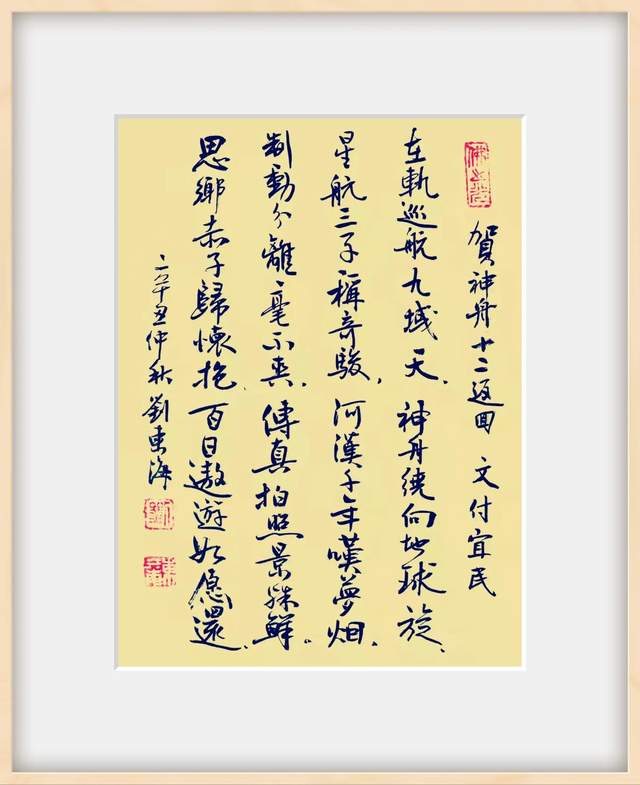 賀神舟十二返回 文付宜民
在軌巡航九域天.神舟繞向地球旋.
星航三子稱奇駿,河漢千年嘆夢烟.
制動分離毫不爽.傳真拍照景殊鮮.
思鄉赤子歸懷抱.百日遨遊如愿還.
二〇辛丑仲秋 劉東海